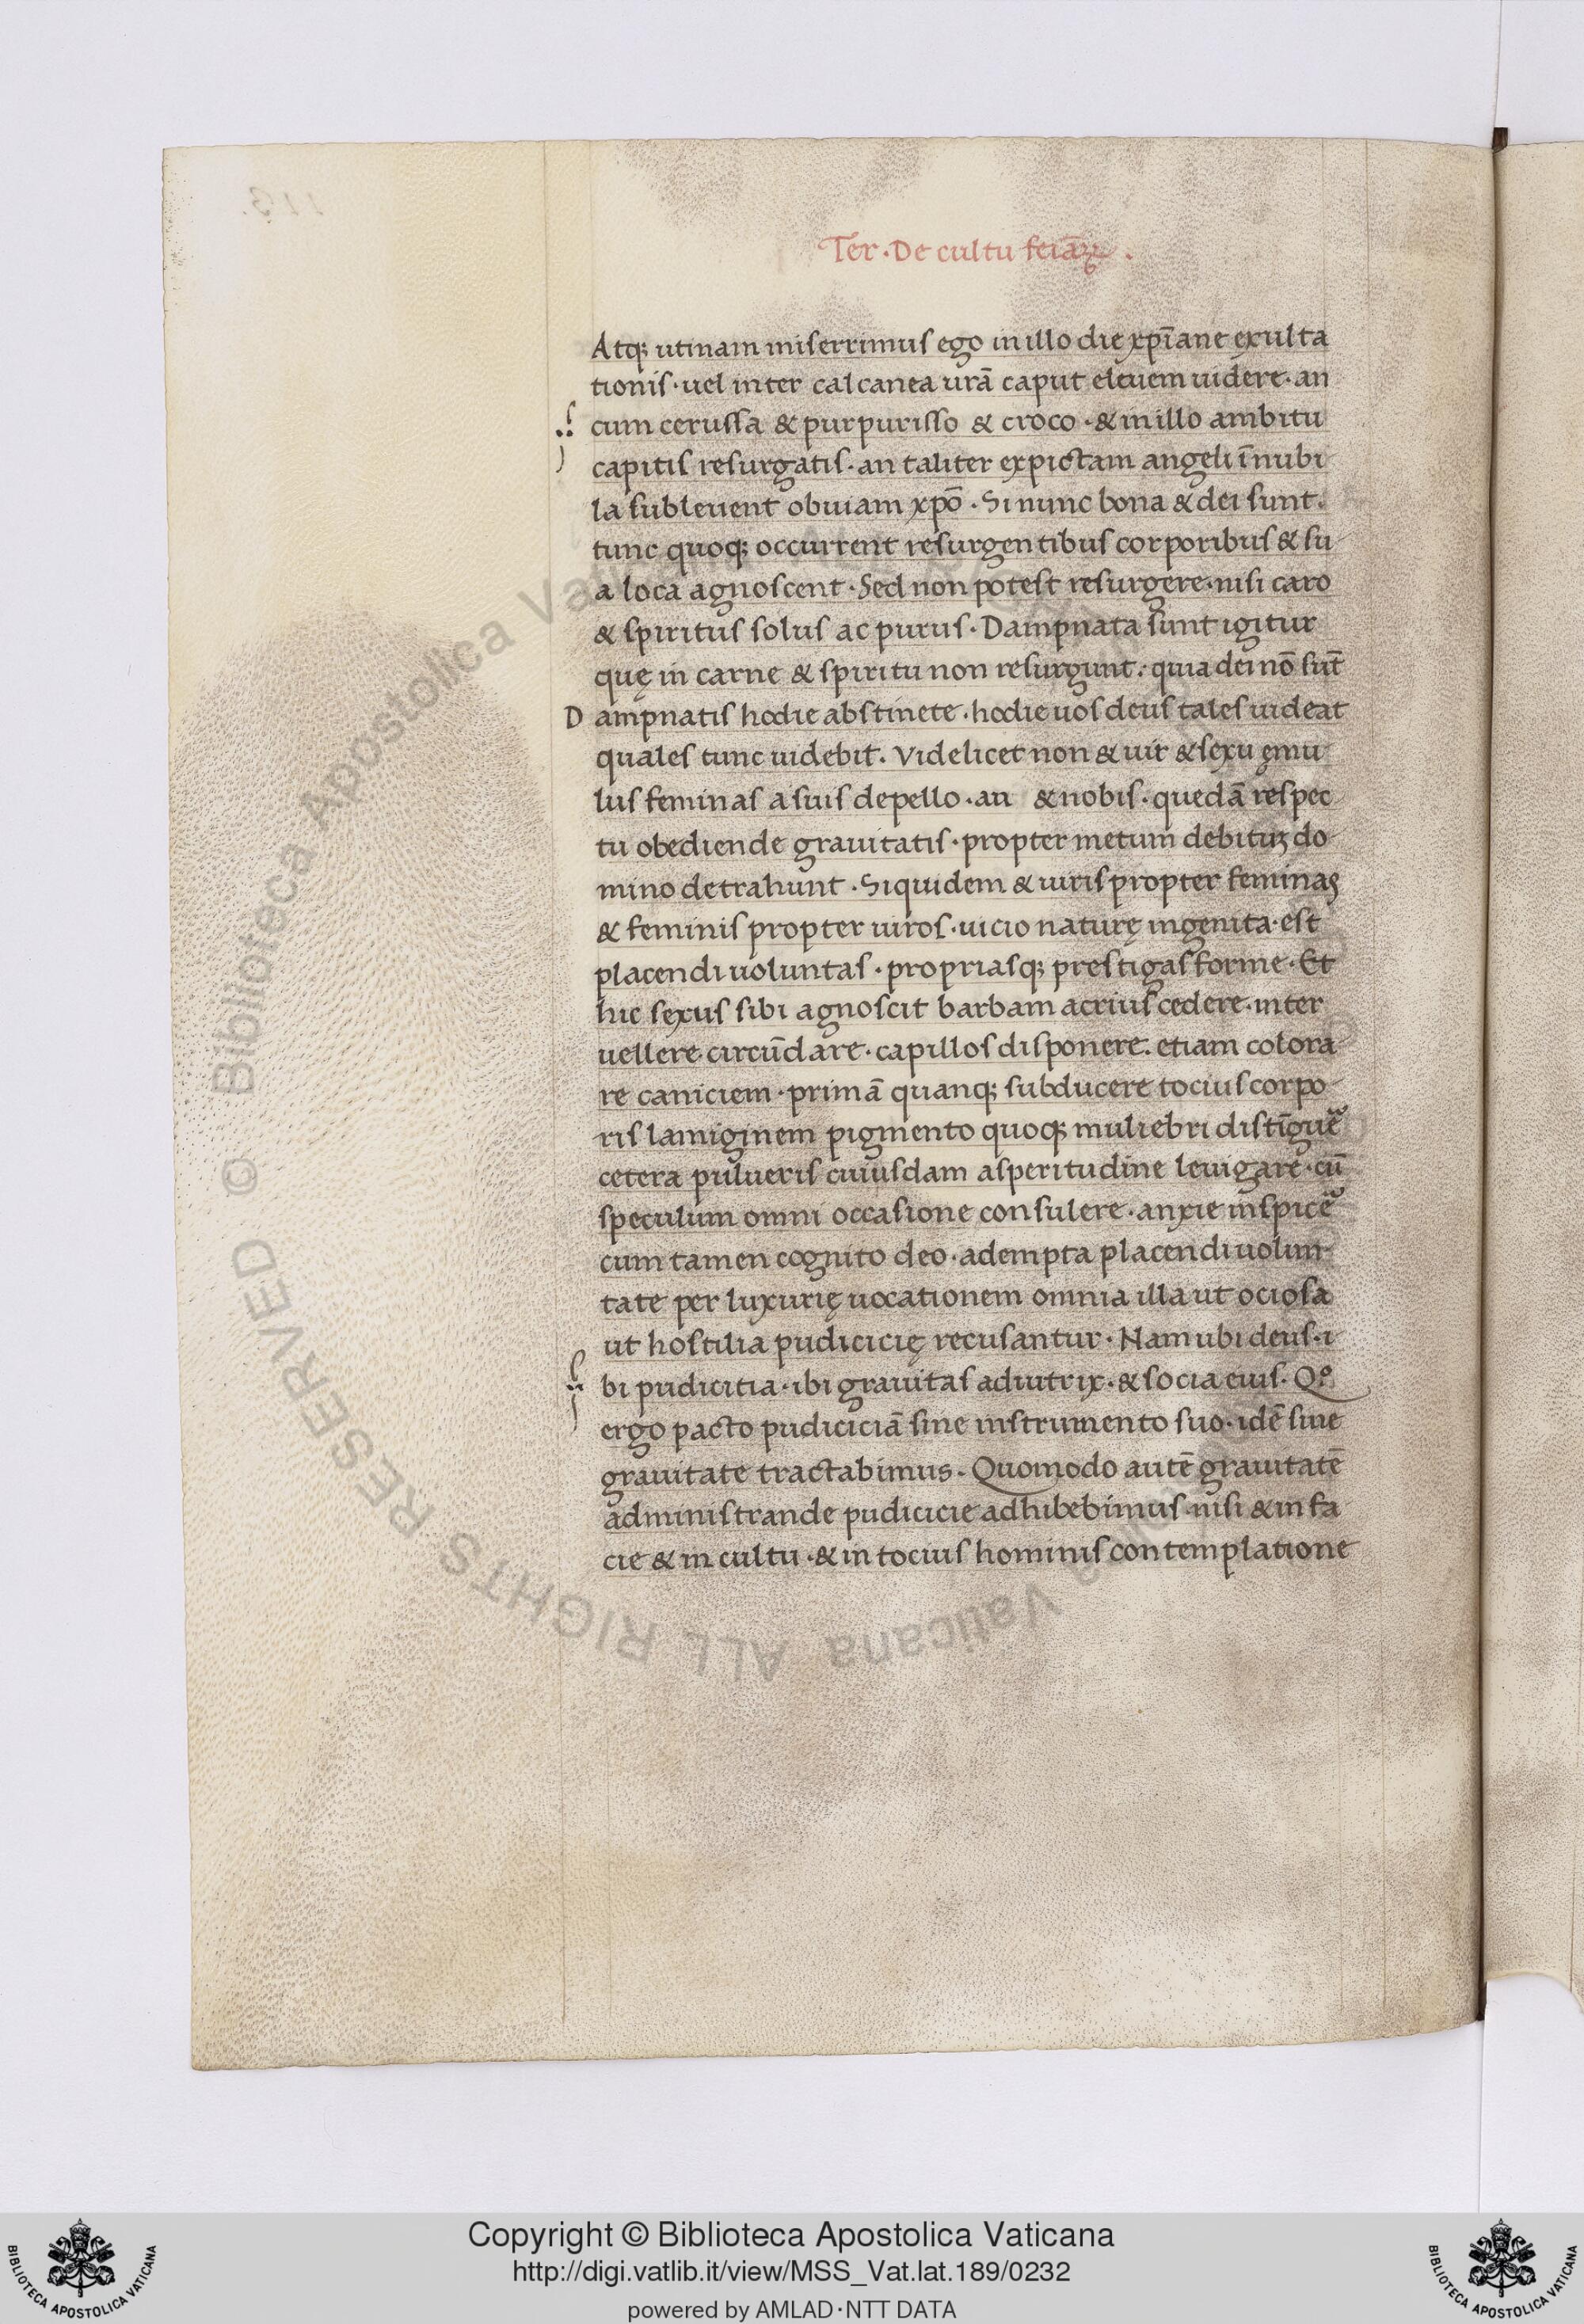 Ter · De cultu feīaꝝ ·
Atqꝫ utinam miserrimus ego in illo die xp̄iane exulta
tionis · uel inter calcanea urā caput eleuem uidere · an
cum cerussa & purpurisso & croco · & in illo ambitu
capitis resurgatis · an taliter expictam angeli ī nubi
la subleuent obuiam xp̄o · Si nunc bona & dei sunt ·
tunc quoqꝫ occurrent resurgentibus corporibus & su
a loca agnoscent · Sed non potest resurgere · nisi caro
& spiritus solus ac purus · Dampnata sunt igitur
quę in carne & spiritu non resurgunt · quia dei nō sūt
D ampnatis hodie abstinete · hodie uos deus tales uideat
quales tunc uidebit · Videlicet non & uir & sexu ęmu
lus feminas a suis depello · an & nobis · quedā respec
tu obediende grauitatis · propter metum debituꝫ do
mino detrahunt · Siquidem & uiris propter feminas
& feminis propter uiros · uicio naturę ingenita · est
placendi uoluntas · propriasqꝫ prestigas forme · Et
hic sexus sibi agnoscit barbam acrius cedere · inter
uellere · circūdare · capillos disponere · etiam colora
re caniciem · primā quanqꝫ subducere tocius corpo
ris lamiginem pigmento quoqꝫ muliebri distīgue᷑
cetera pulueris cuiusdam asperitudine leuigare · cū
speculum omni occasione consulere · anxie inspice᷑
cum tamen cognito deo · adempta placendi uolun
tate per luxurię uocationem omnia illa ut ociosa
ut hostilia pudicicię recusantur · Nam ubi deus · i
bi pudicitia · ibi grauitas adiutrix · & socia eius · Qº
ergo pacto pudiciciā sine instrumento suo · idē sine
grauitate tractabimus · Quomodo autē grauitatē
administrande pudicicie adhibebimus · nisi & in fa
cie & in cultu · & in tocius hominis contemplatione
© Biblioteca Apostolica Vaticana ALL RIGHTS RESERVED
Copyright © Biblioteca Apostolica Vaticana
http://digi.vatlib.it/view/MSS_Vat.lat.189/0232
powered by AMLAD·NTT DATA
BIBLIOTECA APOSTOLICA VATICANA
BIBLIOTECA APOSTOLICA VATICANA